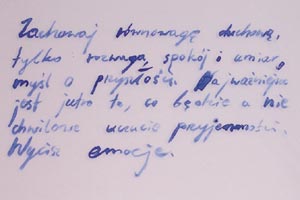 Zachowaj równowagę duchową,
tylko rozwaga, spokój i umiar,
myśl o przyszłości. Najważniejsze
jest jutro to, co będzie a nie
chwilowe uczucie przyjemności.
Wycisz emocje.